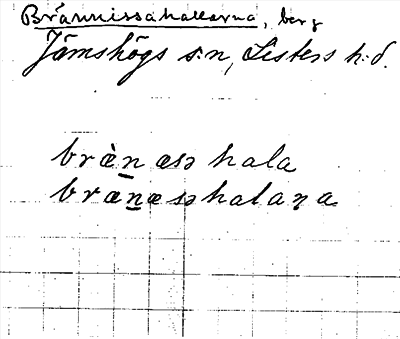 Brännissahallarna, berg
Jämshögs s:n, Listers h:d.
bræ̀n æsə hala
bræ̀næsə halaṇa